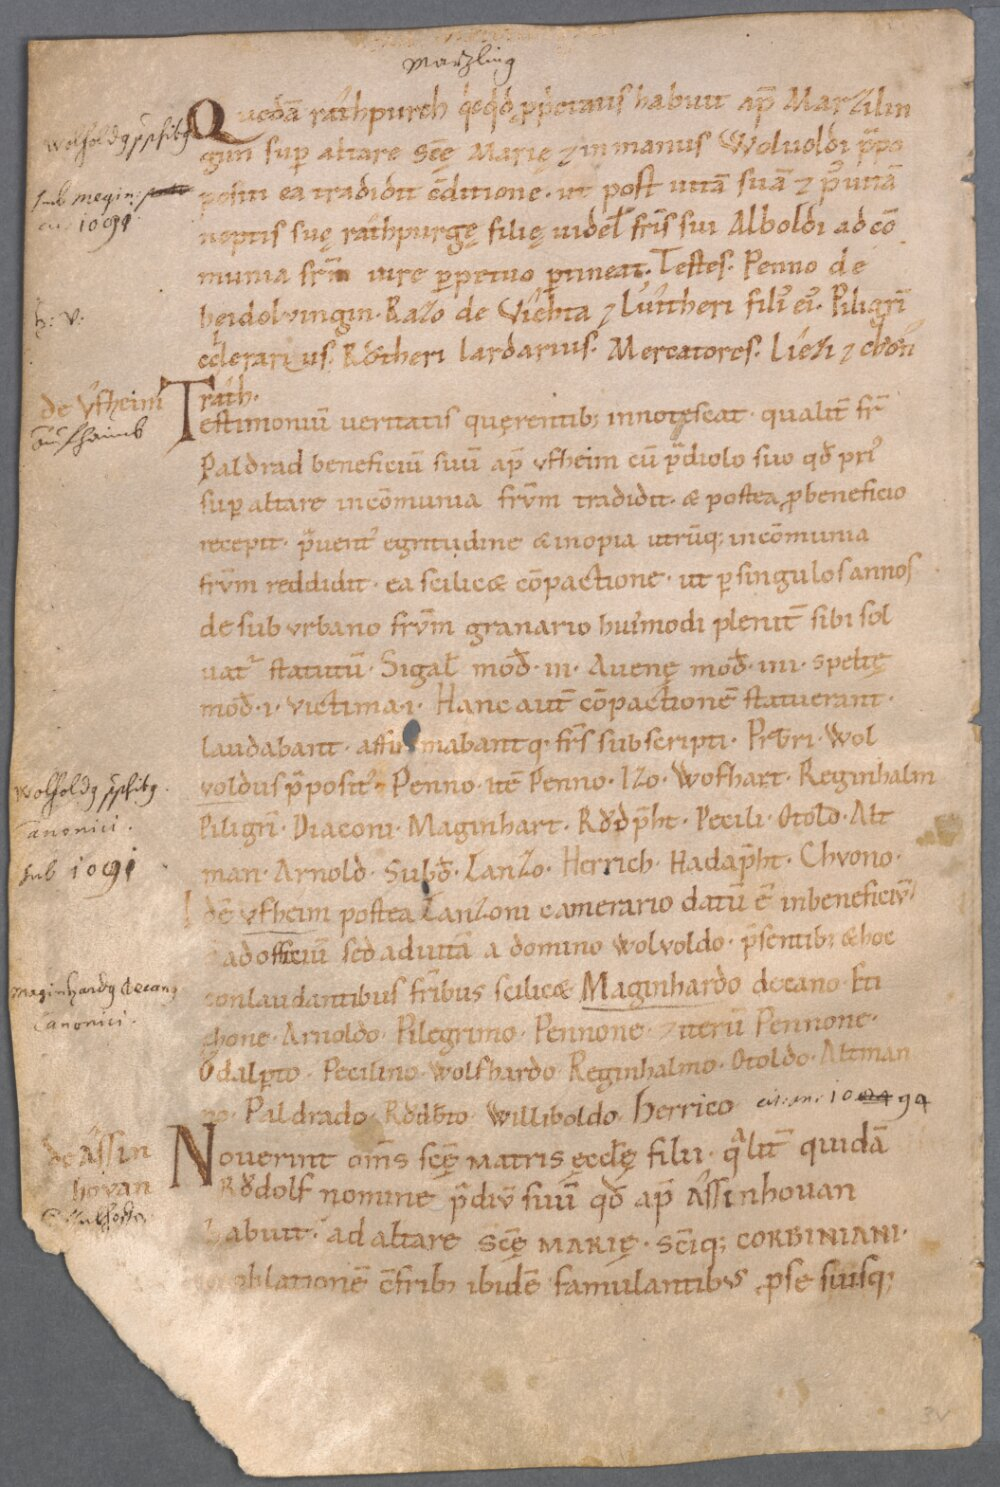 Marzling
Quedā rathpurch q̇cqd ppetauſ habuit ap̄ Marzilin
Wolfoldꝫ
gun ſup altare Scę Marię ⁊ in manuſ Wolvoldi p̄po
poſiti ea traditit c̄ditione · ut poſt uitā ſuā ⁊ p̄uitā
ſub megin:
1091
neptiſ ſuę rathpurgę filię uidel̄ fr̄iſ ſui Alboldi ad cō
munia fr̄m iure ppetuo ptineat. Teſteſ. Penno de
h: v:
beidoluingin · Razo de Viehta ⁊ Luitheri filī eī. Piligrī
celerariuſ. Rǒtheri lardariuſ. Mercatoreſ. Liezi ⁊ chǒn
rath.
de Vfheim
Teſtimoniū veritatiſ quęrentibꝫ innoteſcat · qualit̄ fr̄
Paldrad beneficiū ſuū ap̄ vfheim cū p̄diolo ſuo qd̄ pri᷒
ſup altare in cōmunia fr̄vm tradidit · & poſtea ꝓ beneficio
recepit · p̄uent᷒ egritudine & inopia utrūqꝫ in cōmunia
fr̄vm reddidit · ea ſcilicæ cōpactione · ut p ſinguloſ annoſ
de ſub vrbano fr̄vm granario hui᷒modi plenit̄ ſibi ſol
uat᷒ ſtatutū · Sigal̄ mod̄ · III · Auenę mod̄ · IIII · ſpeltę
mod̄ · I · victima · I · Hanc aut̄ cōpactionē ſtatuerant ·
laudabant · affirmabantqꝫ fr̄ſ ſubſcripti · Prb̄ri · Wol
Wolfoldꝫ
voldus p̄poſit᷒ · Penno · itē Penno · Izo · Wofhart · Reginhalm
Canonici .
Piligrī · Diaconi · Maginhart · Rǒdp̄ht · Pecili · Otold · Alt
man · Arnold · Subd̄ · Zanzo · Herrich · Hadap̄ht · Chvono ·
ſub 1091
Idē vfheim poſtea Zanzoni camerario datū ē in beneficiv̄
ad officiū ſed ad uitā a domino wolvoldo · p̄ſentibꝫ & hoc
Maginhardꝫ Decanꝫ
conlaudantibuſ fr̄ibuſ ſcilicæ Maginhardo decano · Eti
Canonici .
chone · Arnoldo · Pilegrimo · Pennone · ⁊ iterū Pennone ·
Ǒdalpto · Pecilino · Wolfhardo · Reginhalmo · Otoldo · Altman
no · Paldrado · Rǒdb̄to · Williboldo · Herrico 94
de Aſſin
hovan
Noverint om̄s ſcę matriſ ęcclę filii · q̄lit̄ quidā
Rǒdolf nomine p̄div̄ ſuū qd̄ ap̄ Aſſinhouan
habuit · ad altare Scę MARIĘ · Scīqꝫ CORBINIANI ·
oblationē c̄ frībꝫ ibidē famulantibuſ ꝓ ſe ſuiſqꝫ
3v